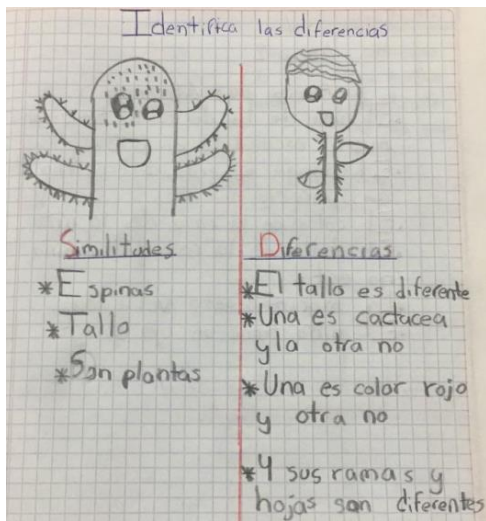 Identifica las diferencias
Similitudes
*Espinas
*Tallo
*Son plantas
Diferencias
*El tallo es diferente
*Una es cactucea
y la otra no
*Una es color rojo
y otra no
*Y sus ramas y
hojas son diferentes